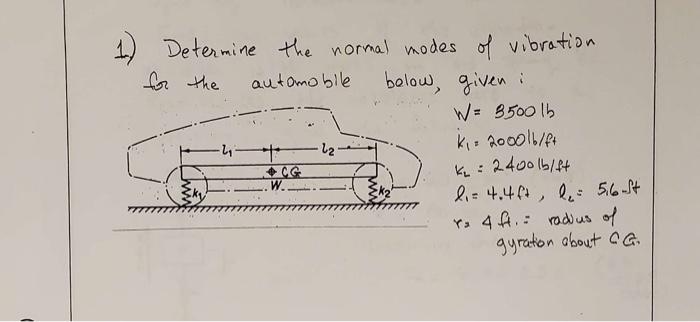 1) Determine the normal modes of vibration
for the automobile below, given :
W = 3500 lb
k₁ = 2000 lb/ft
k₂ = 2400 lb/ft
l₁ = 4.4 ft, l₂ = 5.6 ft
r = 4 ft. = radius of
gyration about CG.
l₁ l₂
CG
W
k₁ k₂